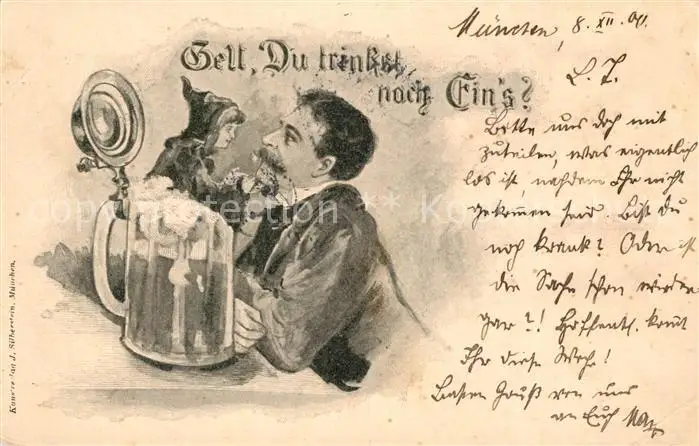 Gelt, Du trinkst
noch Ein's?
München, 8. XII. 00.
L. J.
Bitte uns doch mit
zuteilen, was eigentlich
los ist, nachdem Ihr nicht
gekommen seid. Bist Du
noch krank? Oder ist
die Sache schon wieder
gar?! Hoffentl. kommt
Ihr diese Woche!
Besten Gruß von uns
an Euch Max
Kunstverlag J. Silberstein, München.